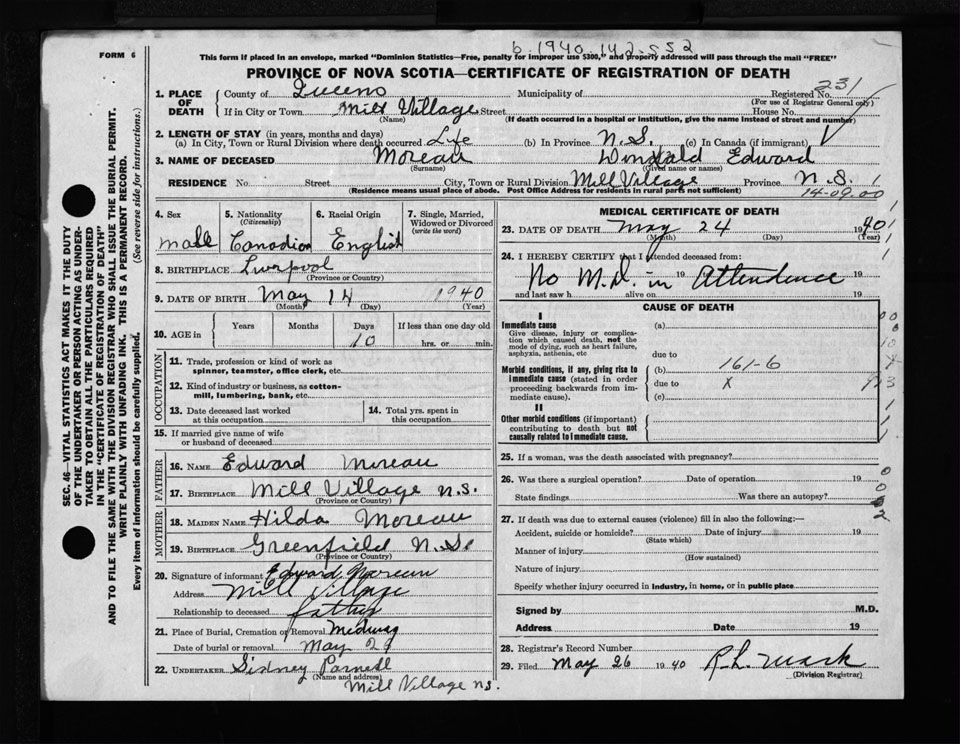 6.1940.142.552
FORM 6
This form if placed in an envelope, marked "Dominion Statistics—Free, penalty for improper use $300," and properly addressed will pass through the mail "FREE"
PROVINCE OF NOVA SCOTIA—CERTIFICATE OF REGISTRATION OF DEATH
SEC. 46—VITAL STATISTICS ACT MAKES IT THE DUTY
OF THE UNDERTAKER OR PERSON ACTING AS UNDER-
TAKER TO OBTAIN ALL THE PARTICULARS REQUIRED
IN THE "CERTIFICATE OF REGISTRATION OF DEATH"
AND TO FILE THE SAME WITH THE DIVISION REGISTRAR WHO SHALL ISSUE THE BURIAL PERMIT.
WRITE PLAINLY WITH UNFADING INK. THIS IS A PERMANENT RECORD.
Every item of information should be carefully supplied. (See reverse side for instructions.)
1. PLACE OF DEATH County of Queens Municipality of Registered No. 231
(For use of Registrar General only)
If in City or Town Mill Village Street House No.
(Name) (If death occurred in a hospital or institution, give the name instead of street and number)
2. LENGTH OF STAY (in years, months and days)
(a) In City, Town or Rural Division where death occurred Life (b) In Province N.S. (c) In Canada (if immigrant)
3. NAME OF DECEASED Moreau Edward
(Surname) (Given name or names)
RESIDENCE No. Street City, Town or Rural Division Mill Village Province N.S.
(Residence means usual place of abode. Post Office Address for residents in rural parts not sufficient) 14-09.00
4. Sex 5. Nationality 6. Racial Origin 7. Single, Married,
(Citizenship) Widowed or Divorced
(write the word)
male Canadian English
8. BIRTHPLACE Liverpool
(Province or Country)
9. DATE OF BIRTH May 14 1940
(Month) (Day) (Year)
10. AGE in Years Months Days If less than one day old
10 hrs. or min.
OCCUPATION
11. Trade, profession or kind of work as
spinner, teamster, office clerk, etc.
12. Kind of industry or business, as cotton-
mill, lumbering, bank, etc.
13. Date deceased last worked at this occupation
14. Total yrs. spent in this occupation
15. If married give name of wife
or husband of deceased
FATHER
16. NAME Edward Moreau
17. BIRTHPLACE Mill Village N.S.
(Province or Country)
MOTHER
18. MAIDEN NAME Hilda Moreau
19. BIRTHPLACE Greenfield N.S.
(Province or Country)
20. Signature of informant Edward Moreau
Address Mill Village
Relationship to deceased father
21. Place of Burial, Cremation or Removal Medway
Date of burial or removal May 27
22. UNDERTAKER Sidney Parnell
(Name and address)
Mill Village N.S.
MEDICAL CERTIFICATE OF DEATH
23. DATE OF DEATH May 24 1940
(Month) (Day) (Year)
24. I HEREBY CERTIFY that I attended deceased from:
No M.D. in Attendence
19 19
and last saw h alive on 19
CAUSE OF DEATH
I
Immediate cause (a)
Give disease, injury or complica-
tion which caused death, not the
mode of dying, such as heart failure,
asphyxia, asthenia, etc
due to
Morbid conditions, if any, giving rise to (b) 161-6
immediate cause (stated in order due to X
proceeding backwards from im-
mediate cause). (c)
II
Other morbid conditions (if important)
contributing to death but not
causally related to immediate cause.
25. If a woman, was the death associated with pregnancy?
26. Was there a surgical operation? Date of operation 19
State findings Was there an autopsy?
27. If death was due to external causes (violence) fill in also the following:—
Accident, suicide or homicide? Date of injury 19
(State which)
Manner of injury
(How sustained)
Nature of injury
Specify whether injury occurred in industry, in home, or in public place
Signed by M.D.
Address Date 19
28. Registrar's Record Number
29. Filed May 26 1940 R.L. Mark
(Division Registrar)